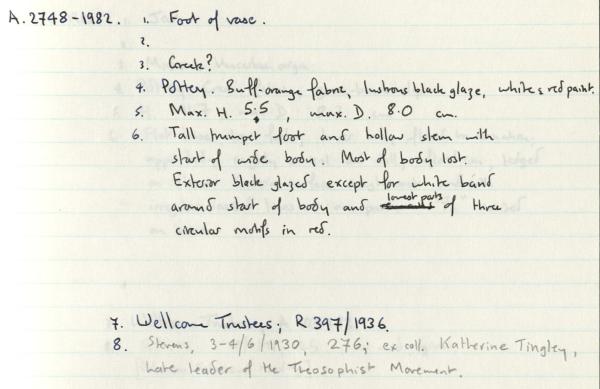 A.2748-1982. 1. Foot of vase.
2.
3. Greek?
4. Pottery. Buff-orange fabric, lustrous black glaze, white & red paint.
5. Max. H. 5.5, max. D. 8.0 cm.
6. Tall trumpet foot and hollow stem with
start of wide body. Most of body lost.
Exterior black glazed except for white band
around start of body and lowest parts of three
circular motifs in red.
7. Wellcome Trustees; R 397/1936.
8. Stevens, 3-4/6/1930, 276; ex coll. Katherine Tingley,
late leader of the Theosophist Movement.